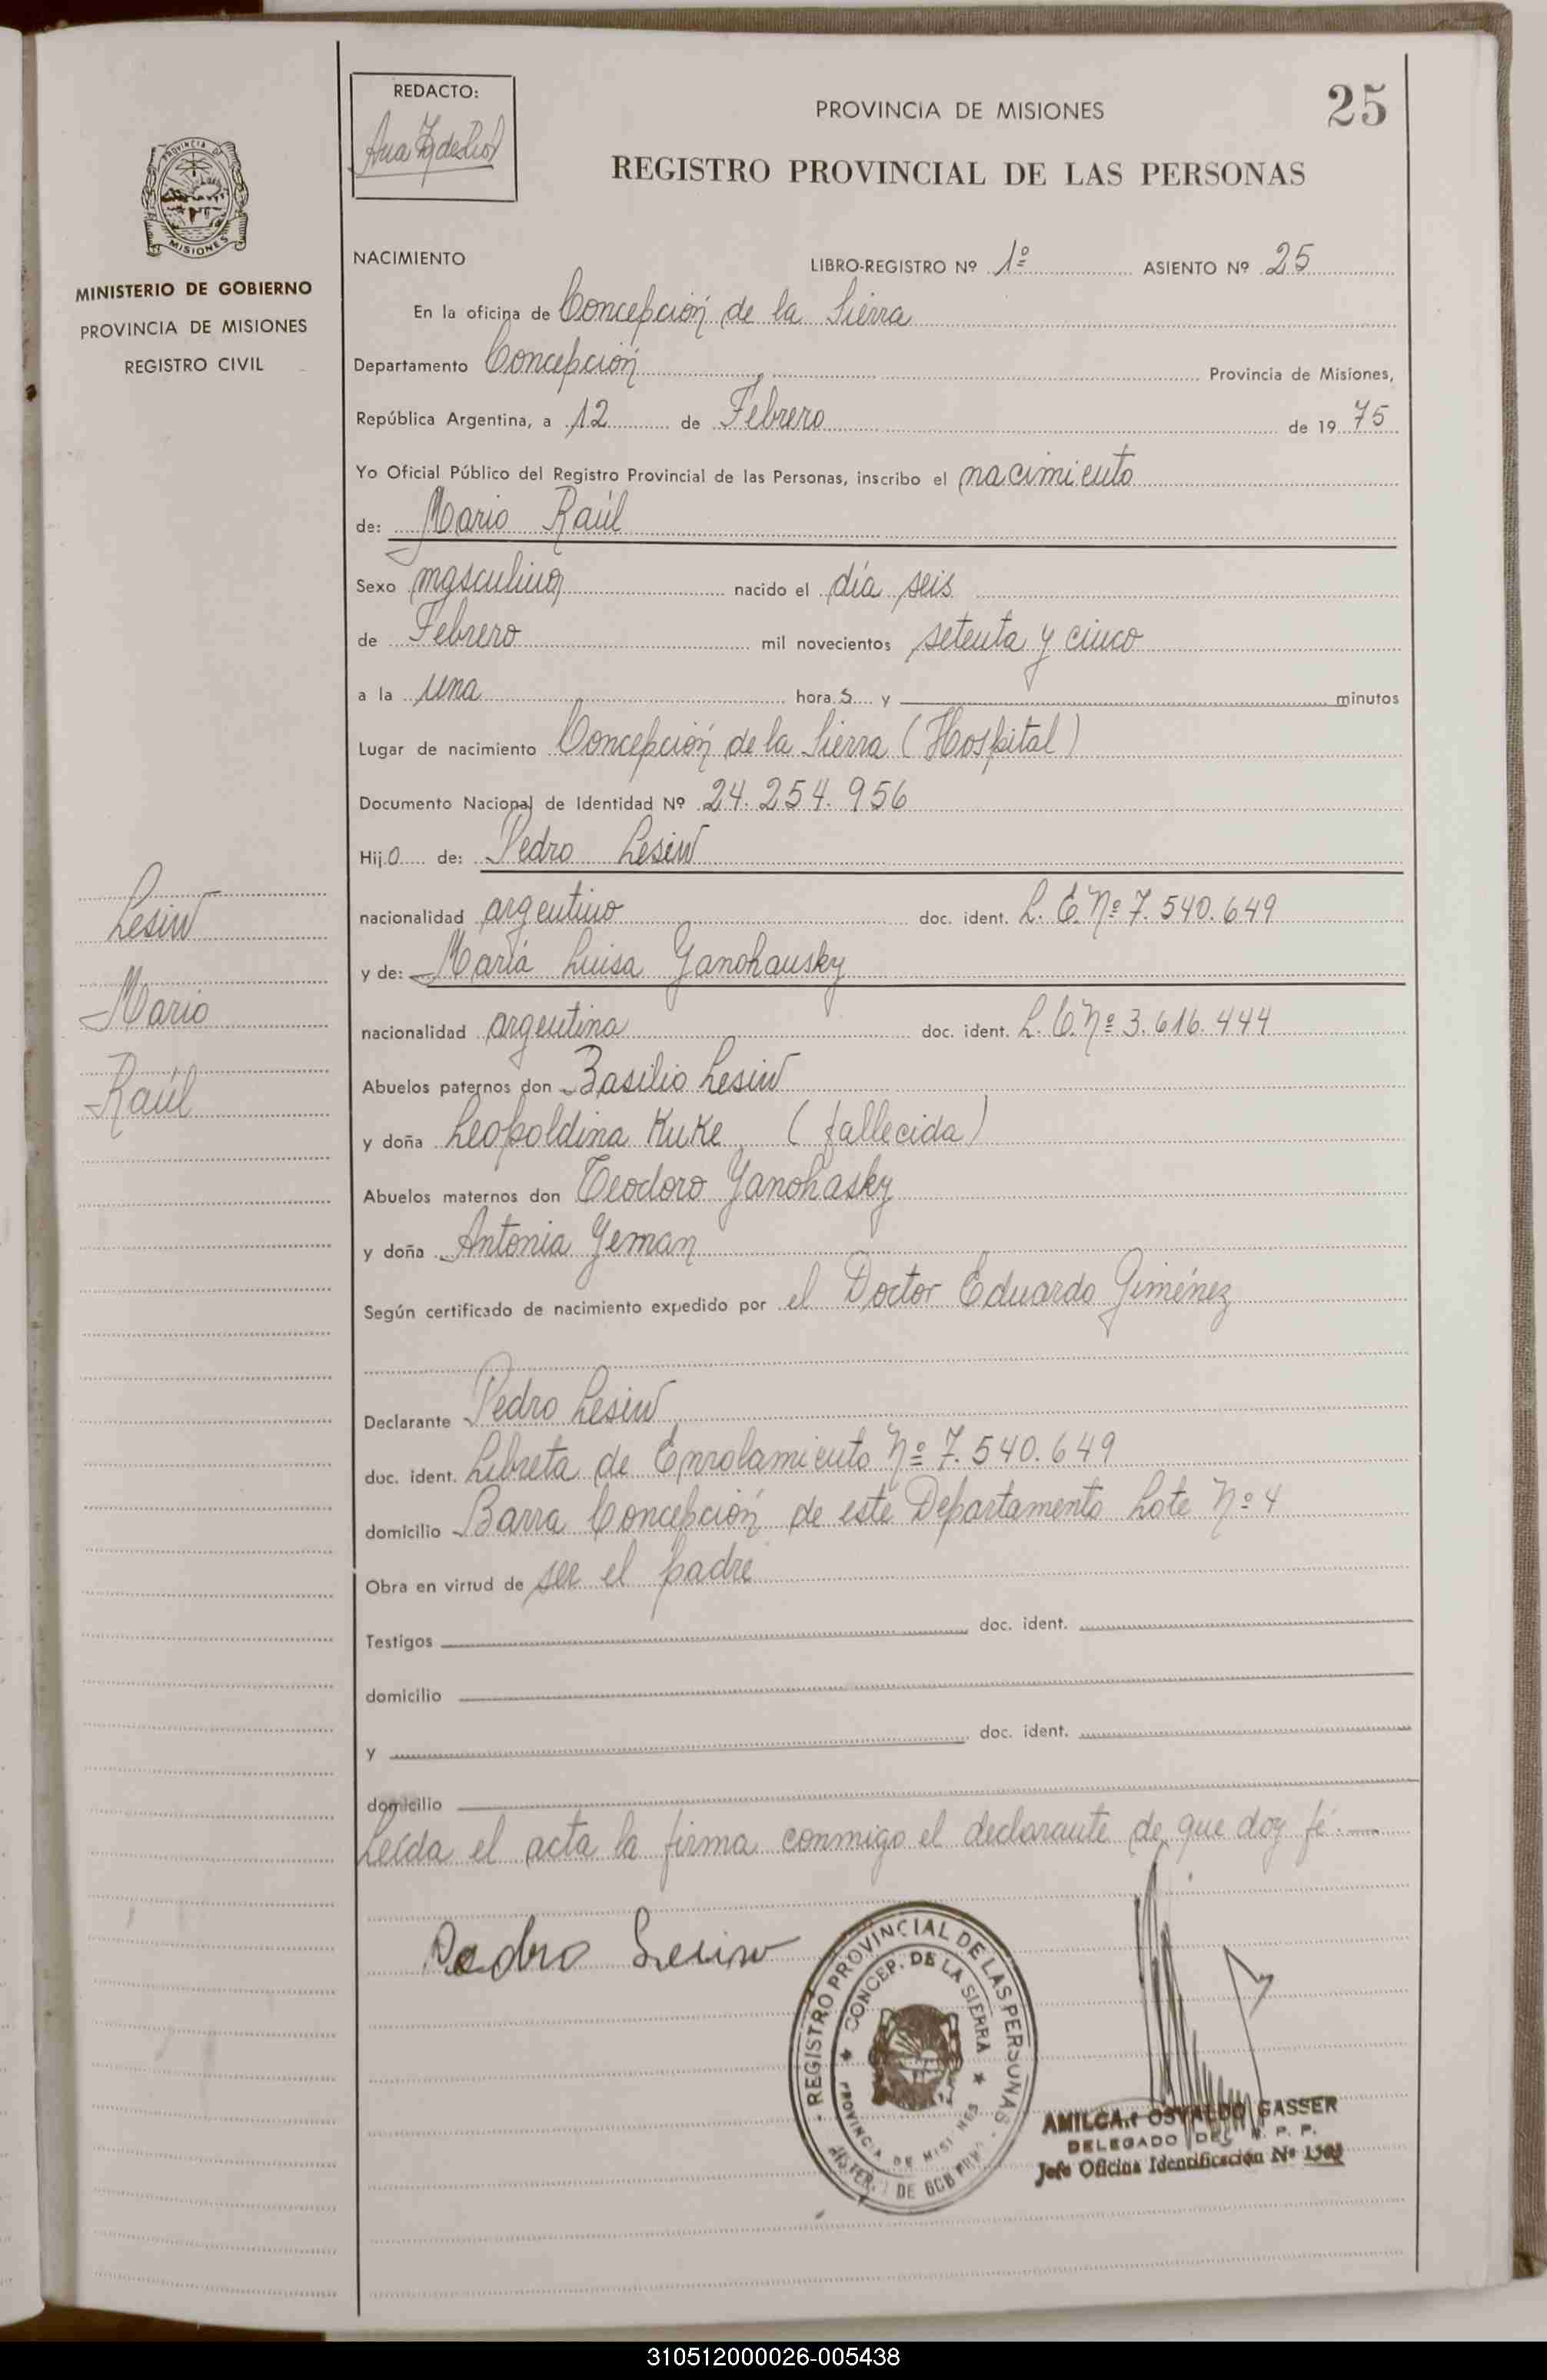 REDACTO:
PROVINCIA DE MISIONES
25
REGISTRO PROVINCIAL DE LAS PERSONAS
PROVINCIA DE
MISIONES
MINISTERIO DE GOBIERNO
PROVINCIA DE MISIONES
REGISTRO CIVIL
NACIMIENTO
LIBRO-REGISTRO Nº 1º ASIENTO Nº 25
En la oficina de Concepción de la Sierra
Departamento Concepción Provincia de Misiones,
República Argentina, a 12 de Febrero de 19 75
Yo Oficial Público del Registro Provincial de las Personas, inscribo el nacimiento
de: Mario Raúl
Sexo masculino nacido el día seis
de Febrero mil novecientos setenta y cinco
a la una hora s y minutos
Lugar de nacimiento Concepción de la Sierra (Hospital)
Documento Nacional de Identidad Nº 24.254.956
Hijo de: Pedro Lesiw
nacionalidad argentino doc. ident. L. E. Nº 7.540.649
y de: María Luisa Yanohausky
nacionalidad argentina doc. ident. L. C. Nº 3.616.444
Abuelos paternos don Basilio Lesiw
y doña Leopoldina Kuke (fallecida)
Abuelos maternos don Teodoro Yanohasky
y doña Antonia Yeman
Según certificado de nacimiento expedido por el Doctor Eduardo Giménez
Declarante Pedro Lesiw
doc. ident. Libreta de Enrolamiento Nº 7.540.649
domicilio Barra Concepción de este Departamento Lote Nº 4
Obra en virtud de ser el padre
Testigos doc. ident.
domicilio
y doc. ident.
domicilio
Leída el acta la firma conmigo el declarante de que doy fé.
Lesiw
Mario
Raúl
Pedro Lesiw
REGISTRO PROVINCIAL DE LAS PERSONAS
CONCEP. DE LA SIERRA
PROVINCIA DE MISIONES
AMILCAR OSVALDO GASSER
DELEGADO DEL R. P. P.
Jefe Oficina Identificación Nº
310512000026-005438